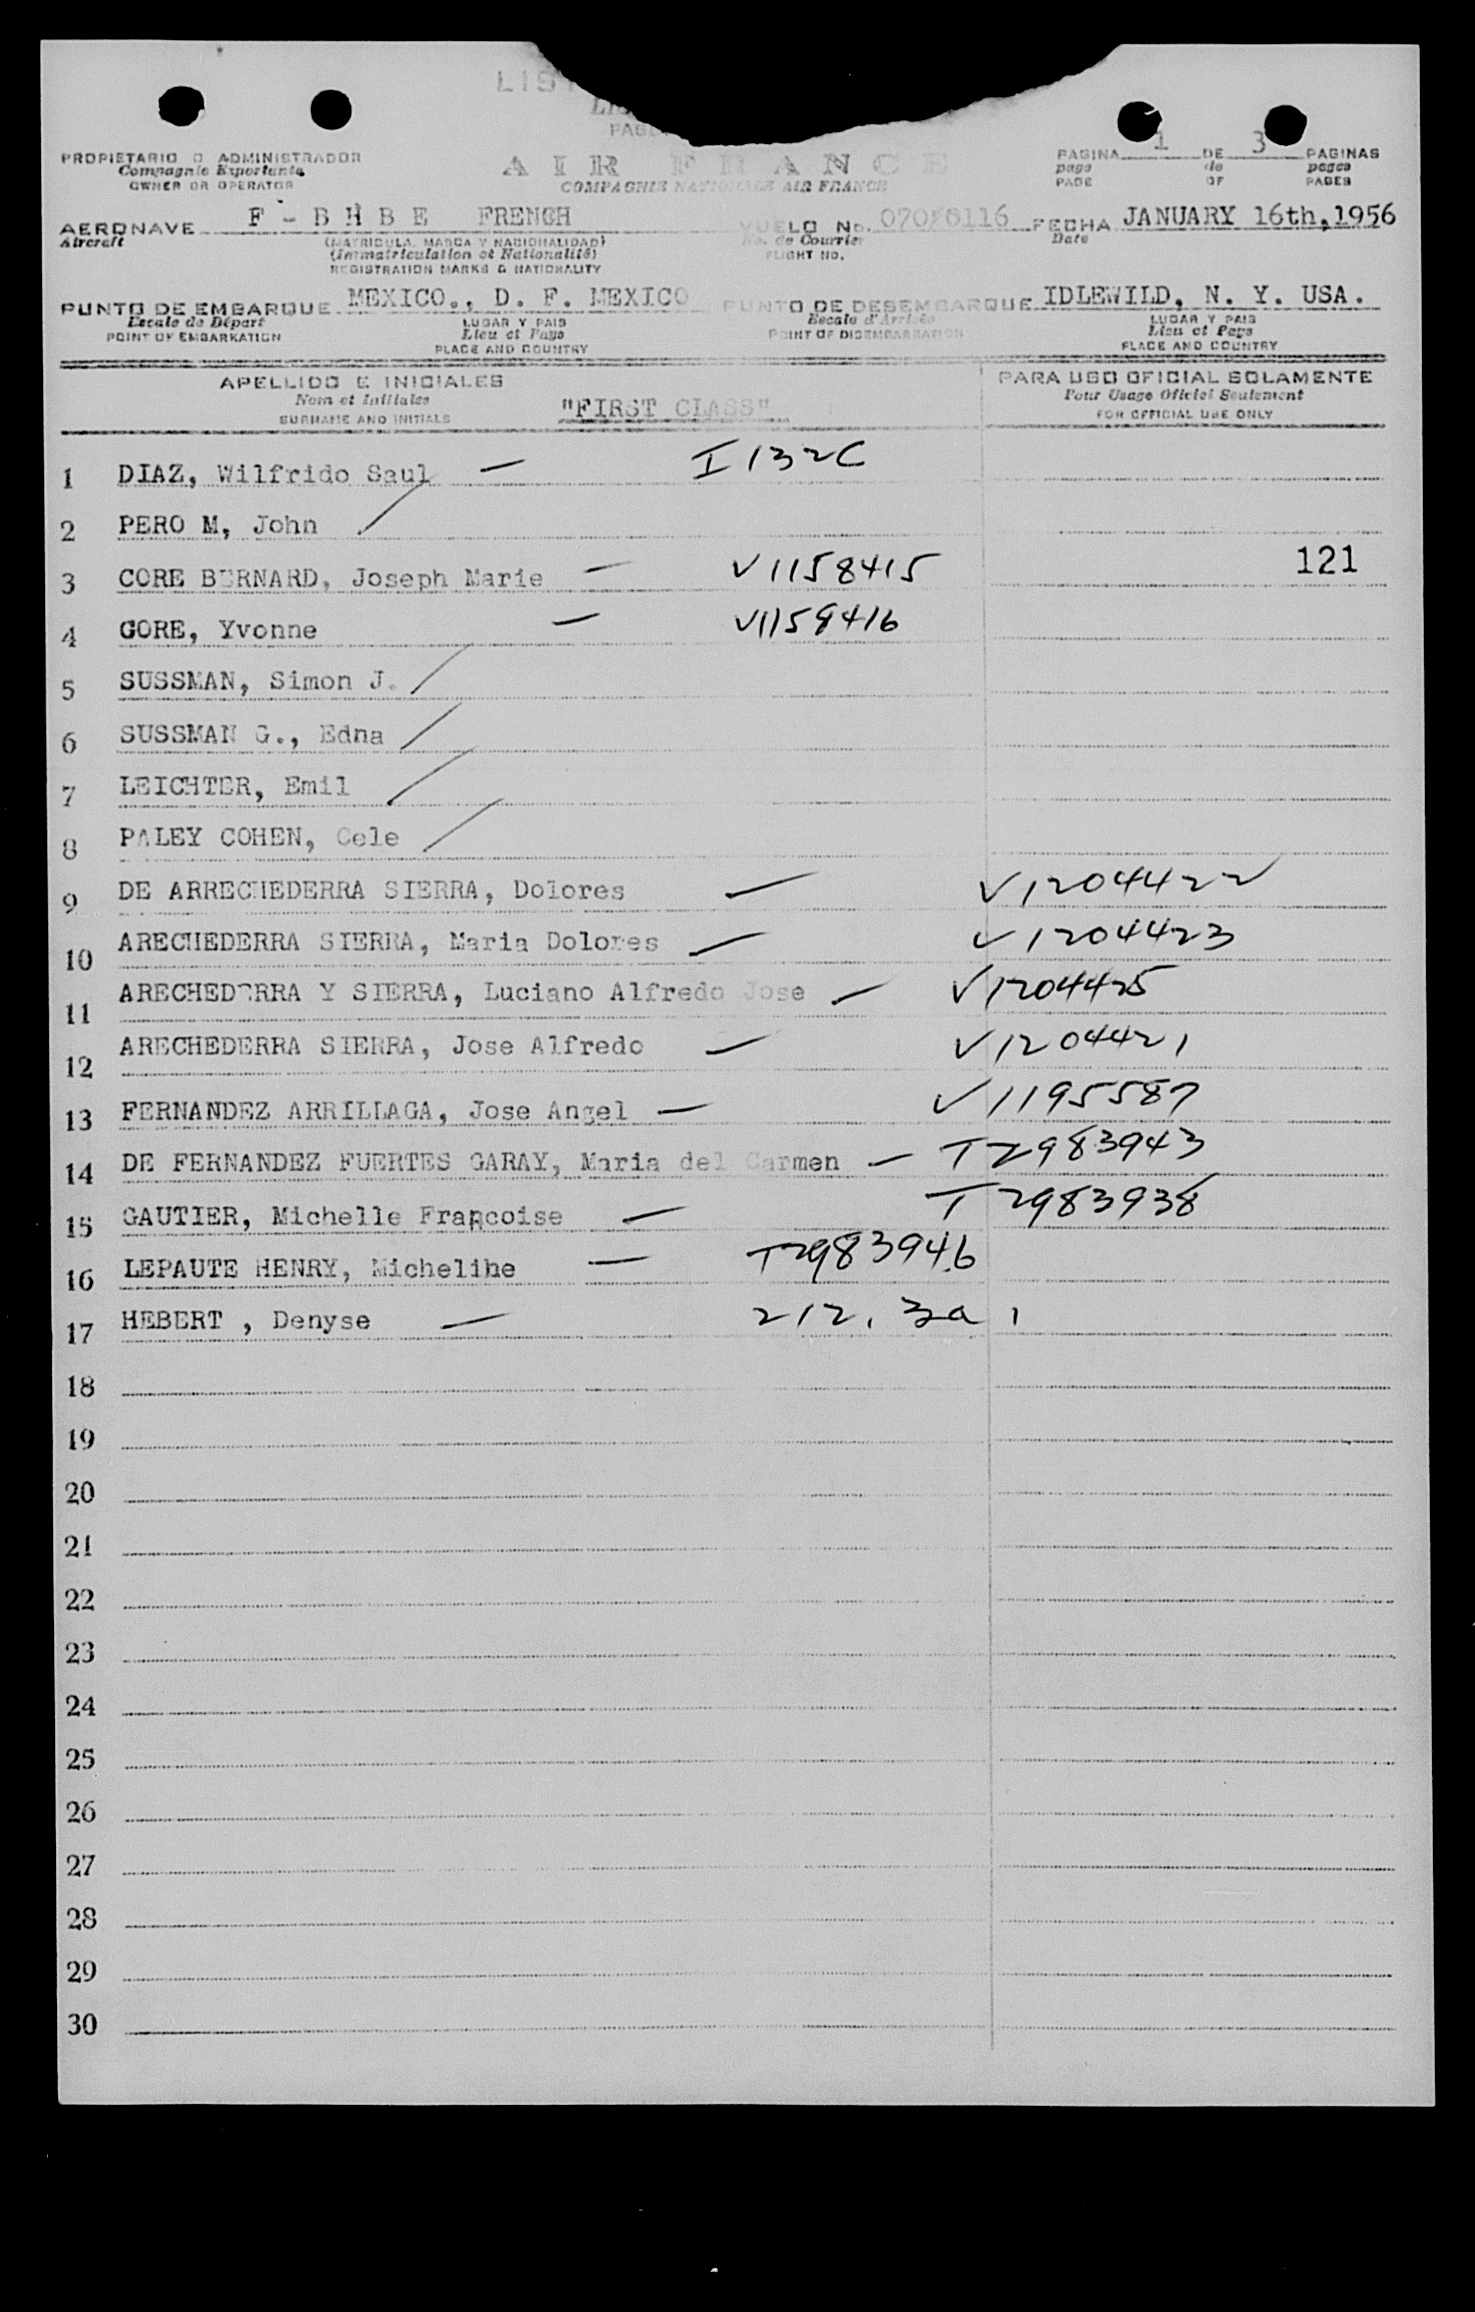 PAGINA 1 DE 3 PAGINAS
page de pages
PAGE OF PAGES
PROPIETARIO O ADMINISTRADOR
Compagnie Exportante
OWNER OR OPERATOR
AIR FRANCE
COMPAGNIE NATIONALE AIR FRANCE
AERONAVE F-BHBE FRENCH VUELO No. FECHA JANUARY 16th,1956
Aircraft (MATRICULA, MARCA Y NACIONALIDAD) No. de Courrier Date
(Immatriculation et Nationalité) FLIGHT NO.
REGISTRATION MARKS & NATIONALITY
PUNTO DE EMBARQUE MEXICO., D. F. MEXICO PUNTO DE DESEMBARQUE IDLEWILD, N. Y. USA.
Escale de Départ LUGAR Y PAIS Escale d'Arrivée LUGAR Y PAIS
POINT OF EMBARKATION Lieu et Pays POINT OF DISEMBARKATION Lieu et Pays
PLACE AND COUNTRY PLACE AND COUNTRY
APELLIDO E INICIALES PARA USO OFICIAL SOLAMENTE
Nom et Initiales "FIRST CLASS" Pour Usage Officiel Seulement
SURNAME AND INITIALS FOR OFFICIAL USE ONLY
1 DIAZ, Wilfrido Saul — I 132C
2 PERO M, John /
3 CORE BERNARD, Joseph Marie — V1158415 121
4 GORE, Yvonne — V1158416
5 SUSSMAN, Simon J. /
6 SUSSMAN G., Edna /
7 LEICHTER, Emil /
8 PALEY COHEN, Cele /
9 DE ARRECHEDERRA SIERRA, Dolores — V1204422
10 ARECHEDERRA SIERRA, Maria Dolores — V1204423
11 ARECHEDERRA Y SIERRA, Luciano Alfredo Jose — V1204425
12 ARECHEDERRA SIERRA, Jose Alfredo — V1204421
13 FERNANDEZ ARRILLAGA, Jose Angel — V1195587
14 DE FERNANDEZ FUERTES GARAY, Maria del Carmen — T2983943
15 GAUTIER, Michelle Françoise — T2983938
16 LEPAUTE HENRY, Micheline — T2983946
17 HEBERT , Denyse — 212.3a1
18
19
20
21
22
23
24
25
26
27
28
29
30